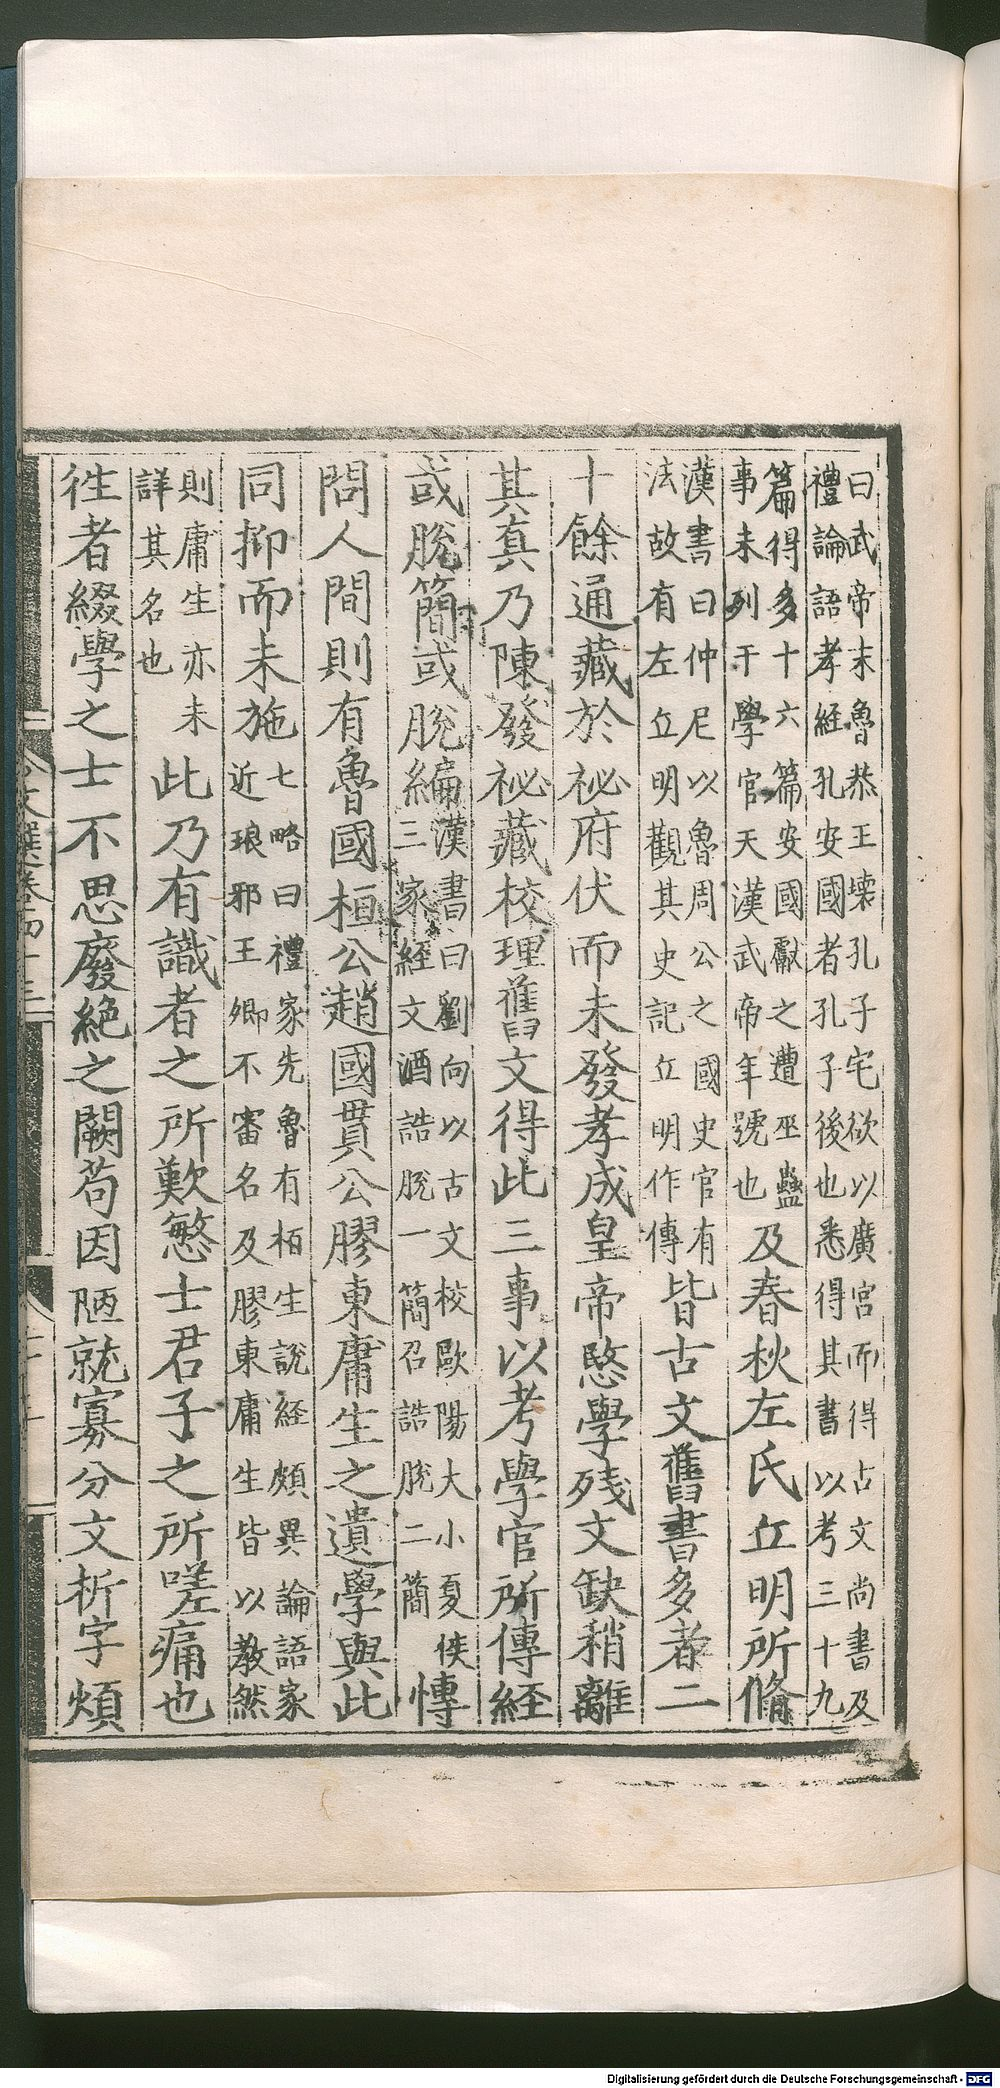 曰武帝末魯恭王壞孔子宅欲以廣宮而得古文尚書及
禮論語孝経孔安國者孔子後也悉得其書以考三十九
篇得多十六篇安國獻之遭巫蠱
事未列于學官天漢武帝年號也及春秋左氏丘明所脩
漢書曰仲尼以魯周公之國史官有
法故有左丘明觀其史記丘明作傳皆古文舊書多者二
十餘通藏於祕府伏而未發孝成皇帝愍學残文缺稍離
其真乃陳發祕藏校理舊文得此三事以考學官所傳経
或脫簡或脫編
漢書曰劉向以古文校歐陽大小夏侯
三家経文酒誥脫一簡召誥脫二簡
慱
問人間則有魯國桓公趙國貫公膠東庸生之遺學與此
同抑而未施
七略曰禮家先魯有栢生說経頗異論語家
近琅邪王卿不審名及膠東庸生皆以教然
則庸生亦未
詳其名也
此乃有識者之所歎慜士君子之所嗟痛也
徃者綴學之士不思廢絶之闕苟因陋就寡分文析字煩
文選卷四十三
Digitalisierung gefördert durch die Deutsche Forschungsgemeinschaft - DFG